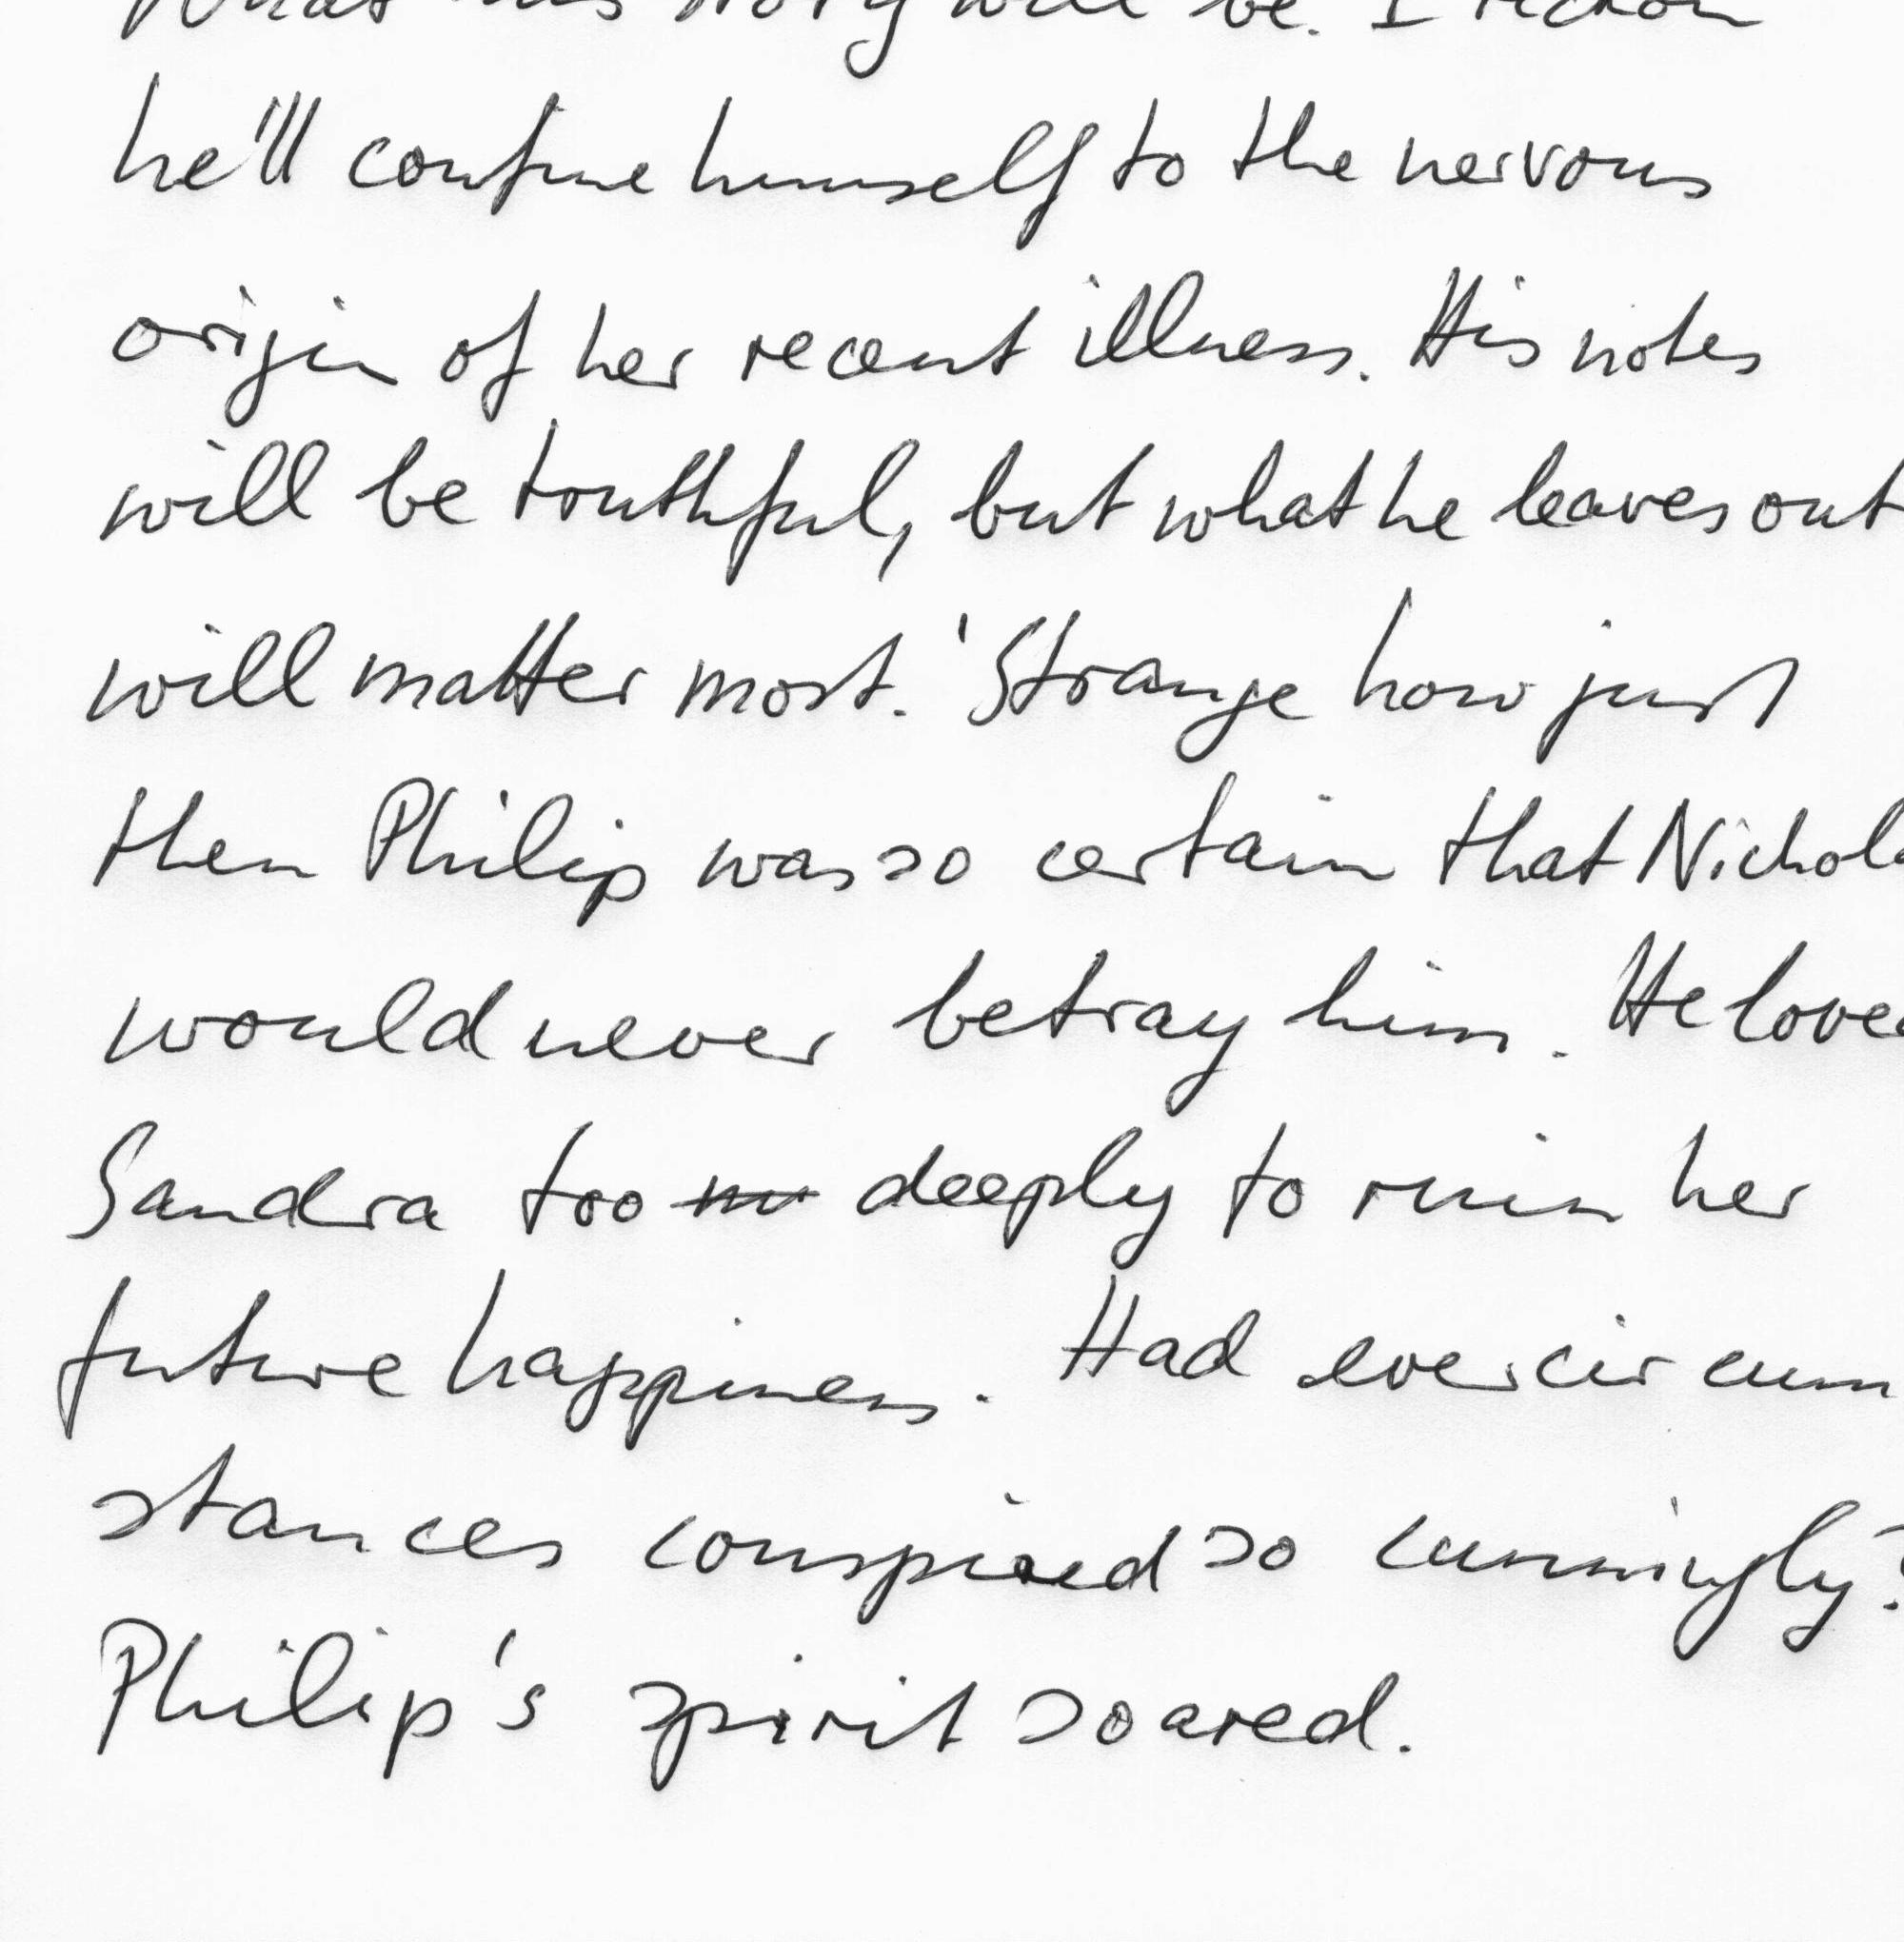 what his story will be. I reckon
he'll confine himself to the nervous
origin of her recent illness. His notes
will be truthful, but what he leaves out
will matter most.' Strange how just
then Philip was so certain that Nichola
would never betray him. He loved
Sandra too deeply to ruin her
future happiness. Had ever circum
stances conspired so cunningly?
Philip's spirit soared.